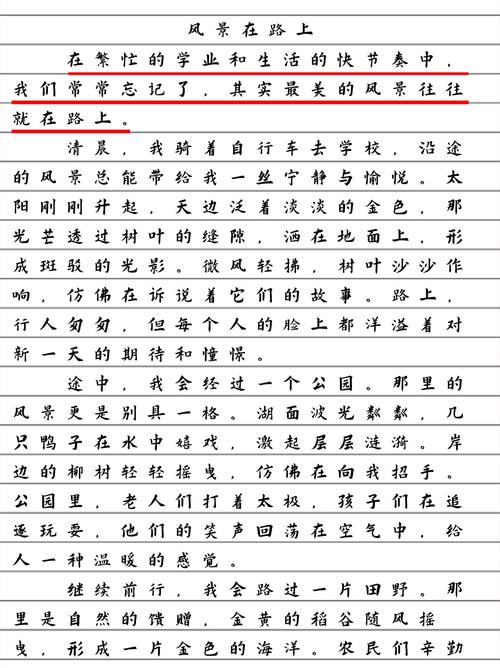 风景在路上
在繁忙的学业和生活的快节奏中，
我们常常忘记了，其实最美的风景往往
就在路上。
清晨，我骑着自行车去学校，沿途
的风景总能带给我一丝宁静与愉悦。太
阳刚刚升起，天边泛着淡淡的金色，那
光芒透过树叶的缝隙，洒在地面上，形
成斑驳的光影。微风轻拂，树叶沙沙作
响，仿佛在诉说着它们的故事。路上，
行人匆匆，但每个人的脸上都洋溢着对
新一天的期待和憧憬。
途中，我会经过一个公园。那里的
风景更是别具一格。湖面波光粼粼，几
只鸭子在水中嬉戏，激起层层涟漪。岸
边的柳树轻轻摇曳，仿佛在向我招手。
公园里，老人们打着太极，孩子们在追
逐玩耍，他们的笑声回荡在空气中，给
人一种温暖的感觉。
继续前行，我会路过一片田野。那
里是自然的馈赠，金黄的稻谷随风摇
曳，形成一片金色的海洋。农民们辛勤